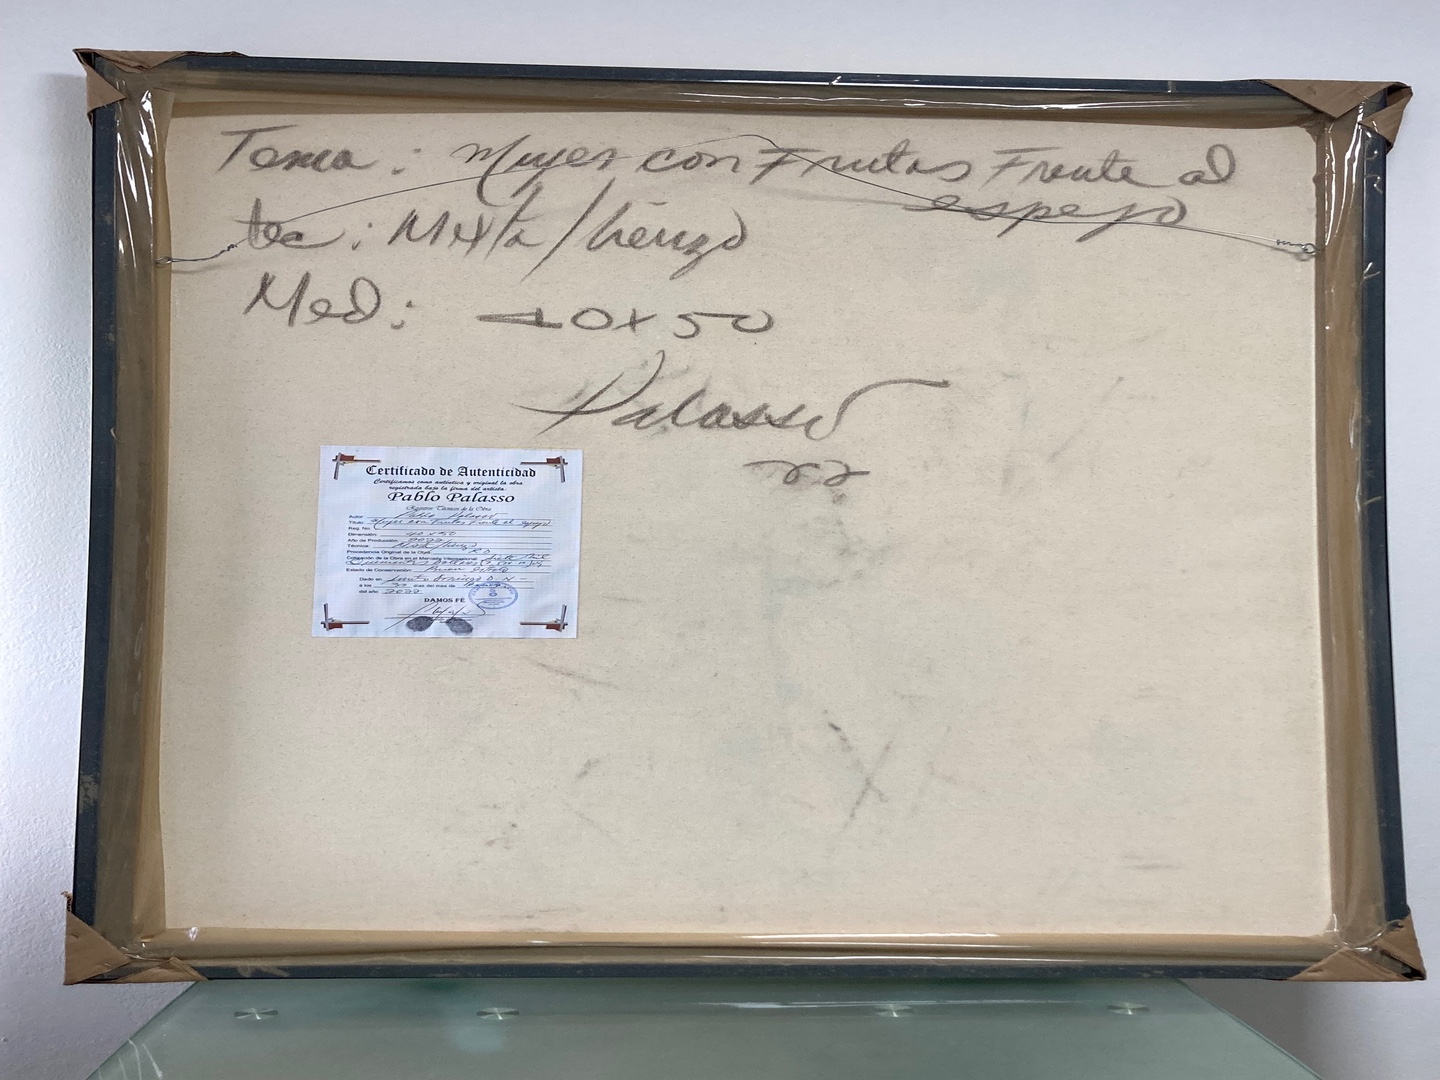 Tema: Mujer con Frutas Frente al
espejo
tec: Mixta/lienzo
Med: 40x50
Palasso
22
Certificado de Autenticidad
Certificamos como auténtica y original la obra
registrada bajo la firma del artista
Pablo Palasso
Registro Técnico de la Obra
Autor: Pablo Palasso
Título: Mujer con Frutas Frente al espejo
Reg. No.
Dimensión: 40 x 50
Año de Producción: 2022
Técnica: Mixta/lienzo
Procedencia Original de la Obra: R.D
Cotización de la Obra en el Mercado Internacional: Siete Mil
Quinientos Dollares
Estado de Conservación: Buen estado
Dado en Santo Domingo D. N.
a los 30 días del mes de
del año 2022
DAMOS FÉ